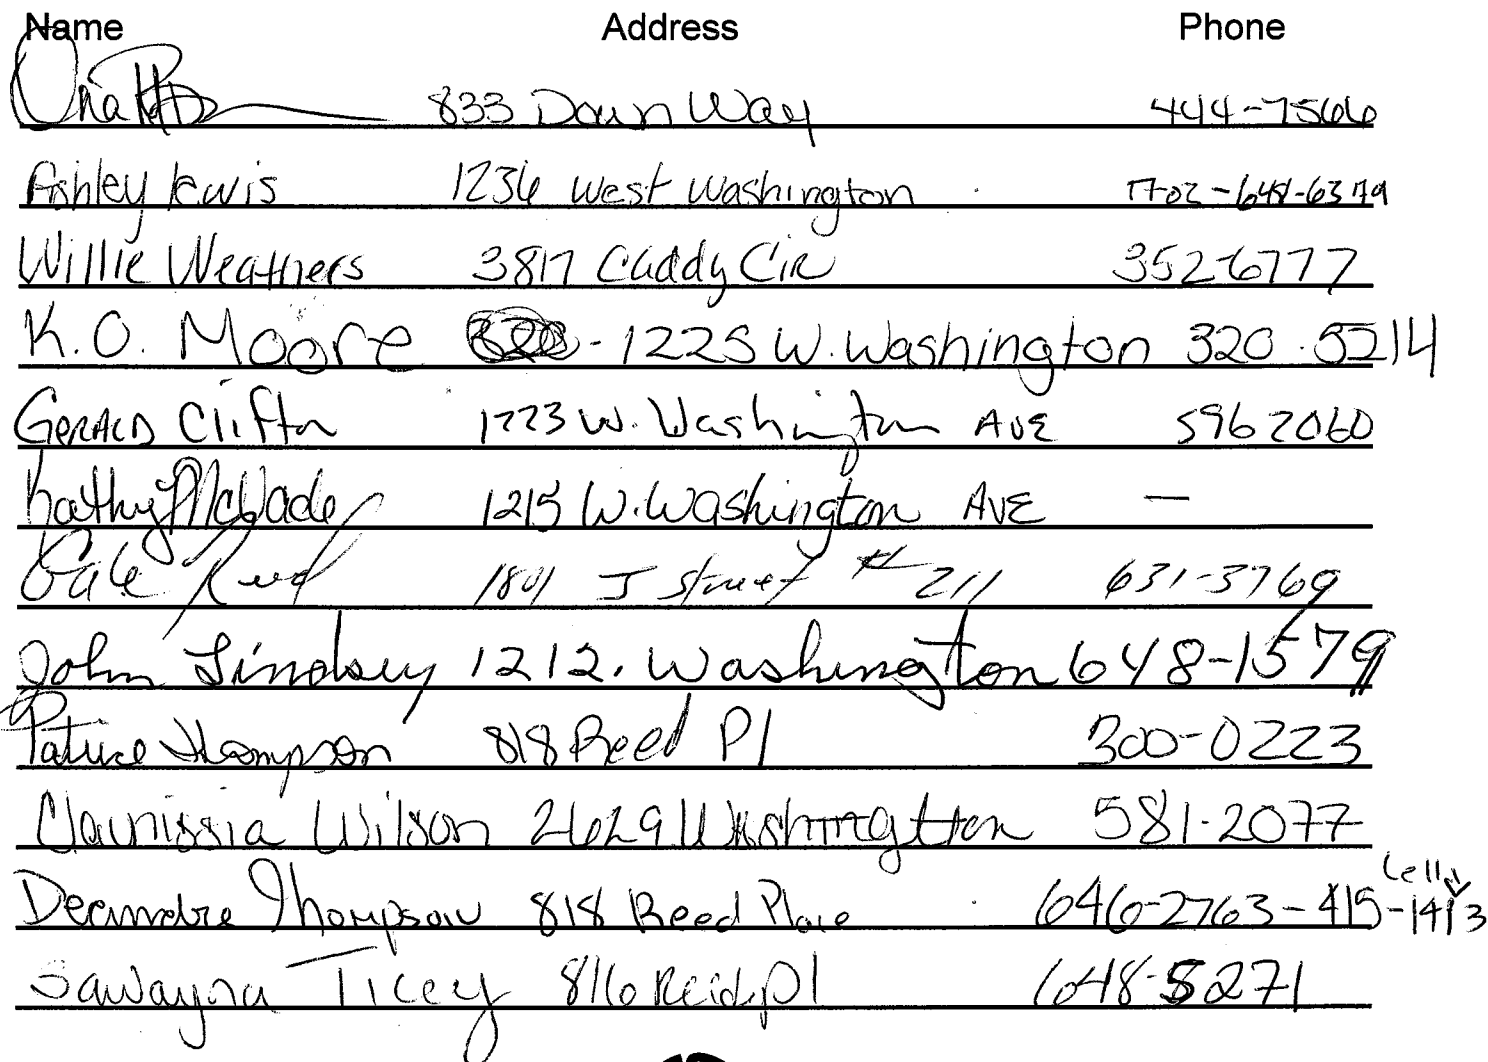 Name Address Phone
Una 833 Dawn Way 444-7566
Ashley Lewis 1236 West Washington 1702-648-6379
Willie Weathers 3817 Caddy Cir 352-6777
K.O. Moore 1225 W. Washington 320.5214
Gerald Clifton 1223 W. Washington AVE 596 2060
Kathy McWade 1215 W. Washington AVE —
Gale Reed 1801 J Street # 211 631-3769
John Lindsey 1212. Washington 648-1579
Patrice Thompson 818 Reed Pl 300-0223
Claunissia Wilson 2629 Washington 581-2077
Cell
Deanndre Thompson 818 Reed Place 646-2763 - 415-1413
Sawayna Ticey 816 Reid pl 648-5271